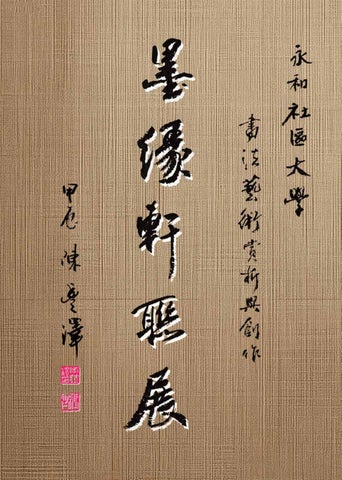 永和社區大學
書法藝術賞析與創作
墨緣軒聯展
甲辰 陳豊澤